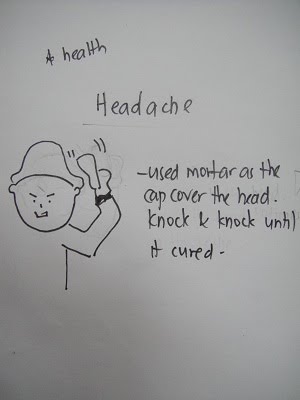 * health
Headache
-used mortar as the
cap cover the head.
Knock & knock until
it cured-